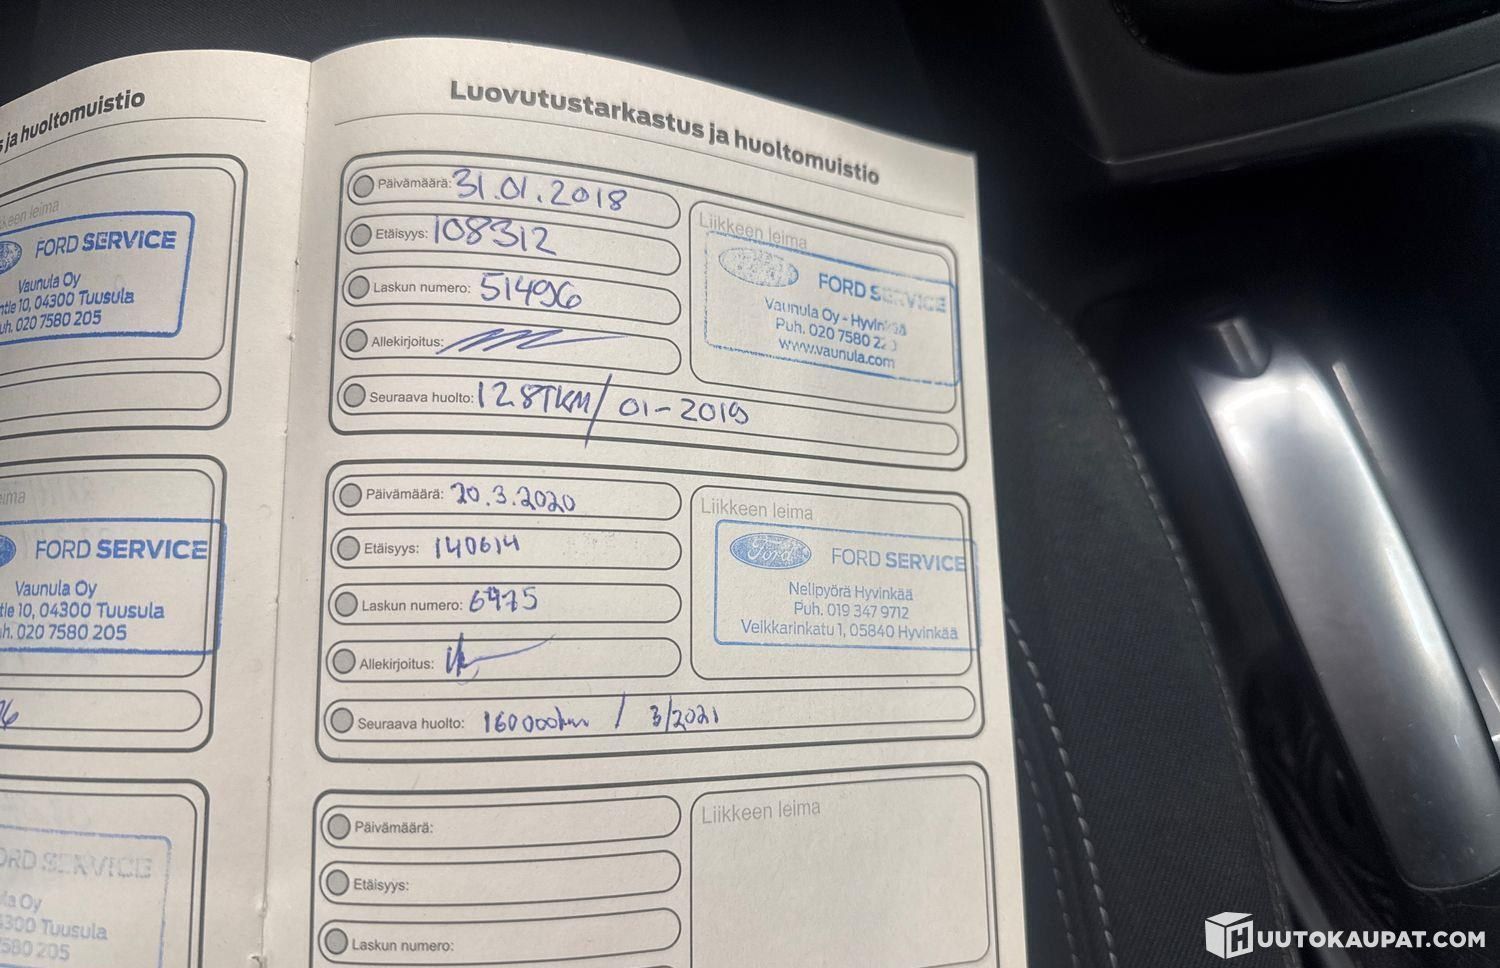 ja huoltomuistio
Liikkeen leima
FORD SERVICE
Vaunula Oy
10, 04300 Tuusula
020 7580 205
FORD SERVICE
Vaunula Oy
10, 04300 Tuusula
020 7580 205
Oy
Tuusula
205
Luovutustarkastus ja huoltomuistio
Päivämäärä: 31.01.2018
Etäisyys: 108312
Laskun numero: 51496
Allekirjoitus:
Seuraava huolto: 128TKM/ 01-2019
Liikkeen leima
FORD SERVICE
Vaunula Oy - Hyvinkää
Puh. 020 7580
www.vaunula.com
Päivämäärä: 20.3.2020
Etäisyys: 140614
Laskun numero: 6975
Allekirjoitus:
Seuraava huolto: 160000km / 3/2021
Liikkeen leima
Ford FORD SERVICE
Nelipyörä Hyvinkää
Puh. 019 347 9712
Veikkarinkatu 1, 05840 Hyvinkää
Päivämäärä:
Etäisyys:
Laskun numero:
Liikkeen leima
HUUTOKAUPAT.COM